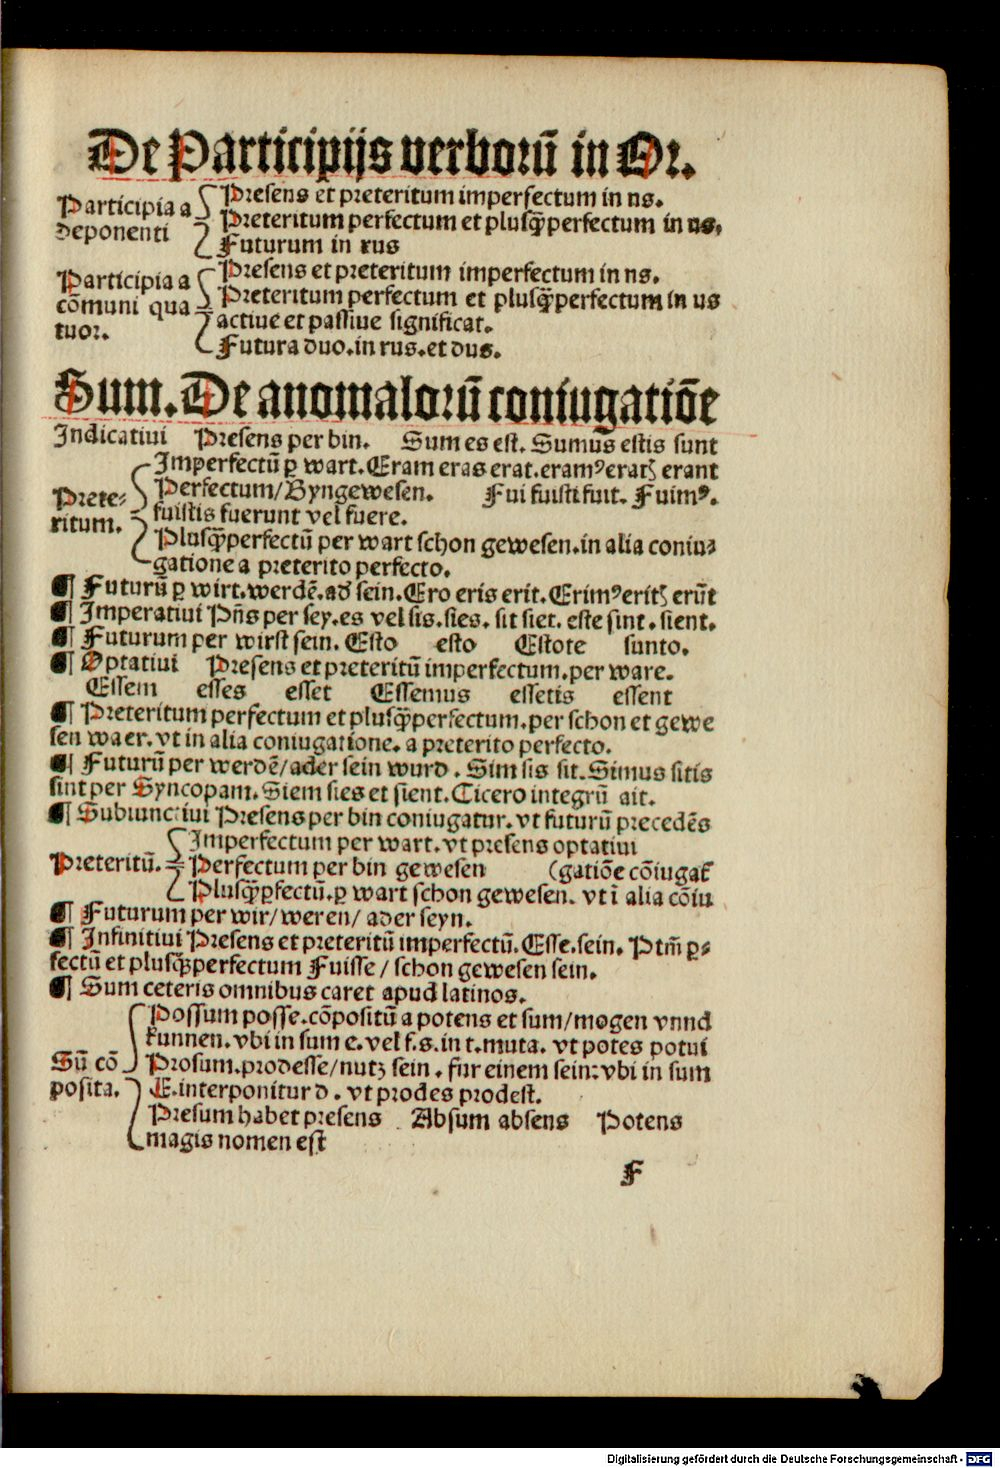 De Participijs verborū in Or.
Participia a deponenti
Presens et preteritum imperfectum in ns.
Preteritum perfectum et plusq̄perfectum in us,
Futurum in rus
Participia a cōmuni quatuor.
Presens et preteritum imperfectum in ns.
Preteritum perfectum et plusq̄perfectum in us
actiue et passiue significat.
Futura duo.in rus.et dus.
Sum.De anomalorū coniugatiōe
Indicatiui Presens per bin. Sum es est. Sumus estis sunt
Prete-
ritum.
Imperfectū ꝑ wart.Eram eras erat.eramꝰ eratꝫ erant
Perfectum/Byngewesen. Fui fuisti fuit. Fuimꝰ.
fuistis fuerunt vel fuere.
Plusq̄perfectū per wart schon gewesen.in alia coniu-
gatione a preterito perfecto.
¶ Futurū ꝑ wirt.werdē.ad̄ sein.Ero eris erit.Erimꝰ eritꝫ erūt
¶ Imperatiui Pn̄s per sey.es vel sis.sies. sit siet. este sint.sient.
¶ Futurum per wirst sein. Esto esto Estote sunto.
¶ Optatiui Presens et preteritū imperfectum.per ware.
Essem esses esset Essemus essetis essent
¶ Preteritum perfectum et plusq̄perfectum.per schon et gewe
sen waer.vt in alia coniugatione. a preterito perfecto.
¶ Futurū per werdē/ader sein wurd. Sim sis sit.Simus sitis
sint per Syncopam.Siem sies et sient.Cicero integrū ait.
¶ Subiunctiui Presens per bin coniugatur.vt futurū precedēs
Preteritū.
Imperfectum per wart.vt presens optatiui
Perfectum per bin gewesen (gatiōe cōiugat̄
Plusq̄ꝑfectū.ꝑ wart schon gewesen. vt ī alia cōiu
¶ Futurum per wir/weren/ader seyn.
¶ Infinitiui Presens et preteritū imperfectū.Esse.sein. Ptm̄ ꝑ-
fectū et plusq̄perfectum Fuisse/schon gewesen sein.
¶ Sum ceteris omnibus caret apud latinos.
Sū cō
posita.
Possum posse.cōpositū a potens et sum/mogen vnnd
kunnen.vbi in sum e.vel f.s.in t.muta. vt potes potui
Prosum.prodesse/nutz sein. fur einem sein:vbi in sum
E.interponitur d. vt prodes prodest.
Presum habet presens Absum absens Potens
magis nomen est
F
Digitalisierung gefördert durch die Deutsche Forschungsgemeinschaft - DFG